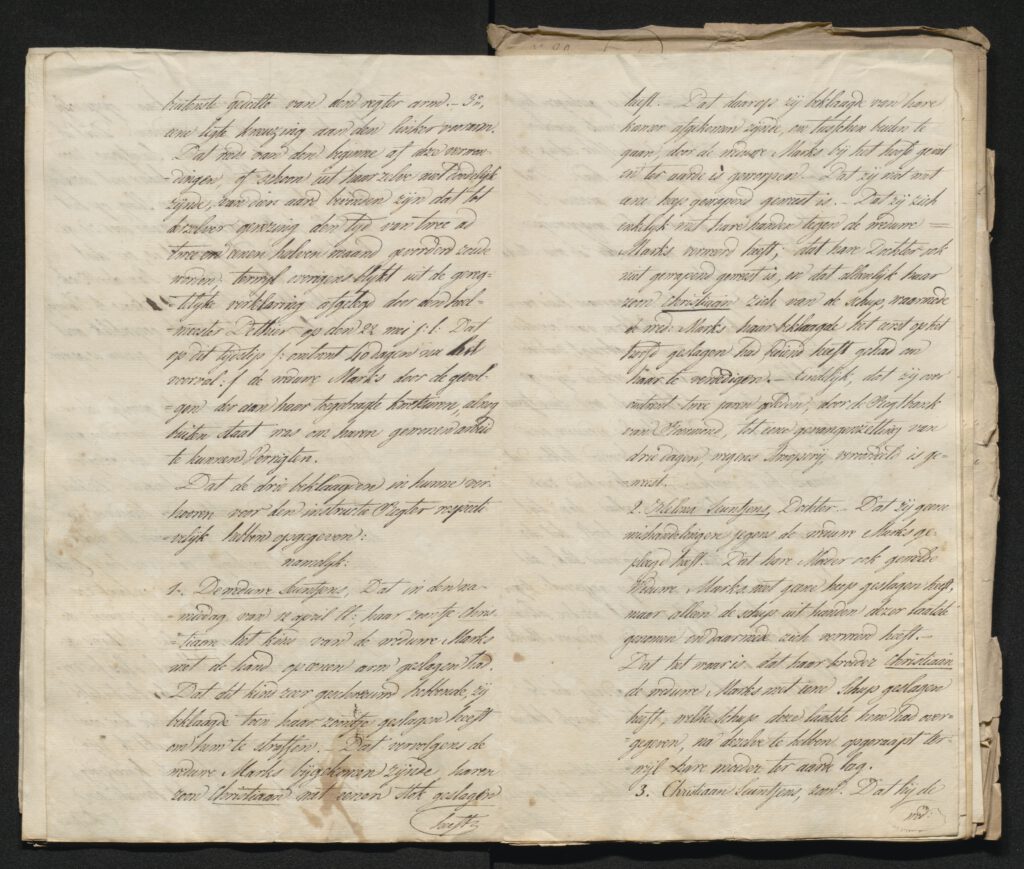 buitenste gedeelte van den regter arm. – 3o,
eene ligte kneuzing aan den linker voorarm.
Dat reeds van den beginne af deze verwon-
-dingen, ofschoon uit haar zelve niet doodelijk
zijnde, van dien aard bevonden zijn dat tot
derzelver genezing den tijd van twee ad
twee en eenen halven maand gevorderd zoude
worden terwijl overigens blijkt uit de gereg-
-telijke verklaring afgelegd door den heel-
meester op den 22 mei j: l: Dat
op dit tijdstip /: omtrent 40 dagen na het
voorval :/ de weduwe Marks door de gevol-
-gen der aan haar toegebragte kwetsuren, alnog
buiten staat was om haren gewonen arbeid
te kunnen verrigten.
Dat de drie beklaagden in hunne ver-
-hooren voor den instructie Regter respecti-
-velijk hebben opgegeven:
namelijk:
1. De weduwe Luintjens, Dat in den na-
-middag van 12 april ll: haar zoontje Chris-
-tiaan het kind van de weduwe Marks
met de hand op eenen arm geslagen had.
Dat dit kind zeer geschreeuwd hebbende, zij
beklaagde toen haar zoontje geslagen heeft
om hem te straffen. Dat vervolgens de
weduwe Marks bijgekomen zijnde, haren
zoon Christiaan met eenen stok geslagen
heeft
heeft. Dat daarop zij beklaagde van hare
kamer afgekomen zijnde, om tusschen beiden te
gaan, door de weduwe Marks bij het hoofd gevat
en ter aarde is geworpen. – Dat zij niet met
eene heep gewapend geweest is. – Dat zij zich
enkelijk met hare handen tegen de weduwe
Marks verweerd heeft, dat hare Dochter ook
niet gewapend geweest is, en dat alleenlijk haar
zoon Christiaan zich van de schup, waarmede
de wed: Marks haar beklaagde het eerst op het
hoofd geslagen had bediend heeft gehad om
haar te verdedigen. – Eindelijk, dat zij over
omtrent twee jaren geleden, door de Regtbank
van Roermond, tot eene gevangenzetting van
drie dagen, wegens verwezen is ge-
-weest.
2. Helena Luintjens, Dochter. – Dat zij geene
mishandelingen jegens de weduwe Marks ge-
-pleegd heeft. Dat hare Moeder ook gemelde
Weduwe Marks met geene heep geslagen heeft,
maar alleen de schup uit handen dezer laatste
genomen en daarmede zich verweerd heeft. –
Dat het waar is dat haar broeder Christiaan
de weduwe Marks met eene schup geslagen
heeft, welke schup deze laatste hem had over-
-gegeven, na dezelve te hebben opgeraapt ter-
-wijl hare moeder ter aarde lag.
3. Christiaan Luintjens, zoon. Dat hij de
wed: